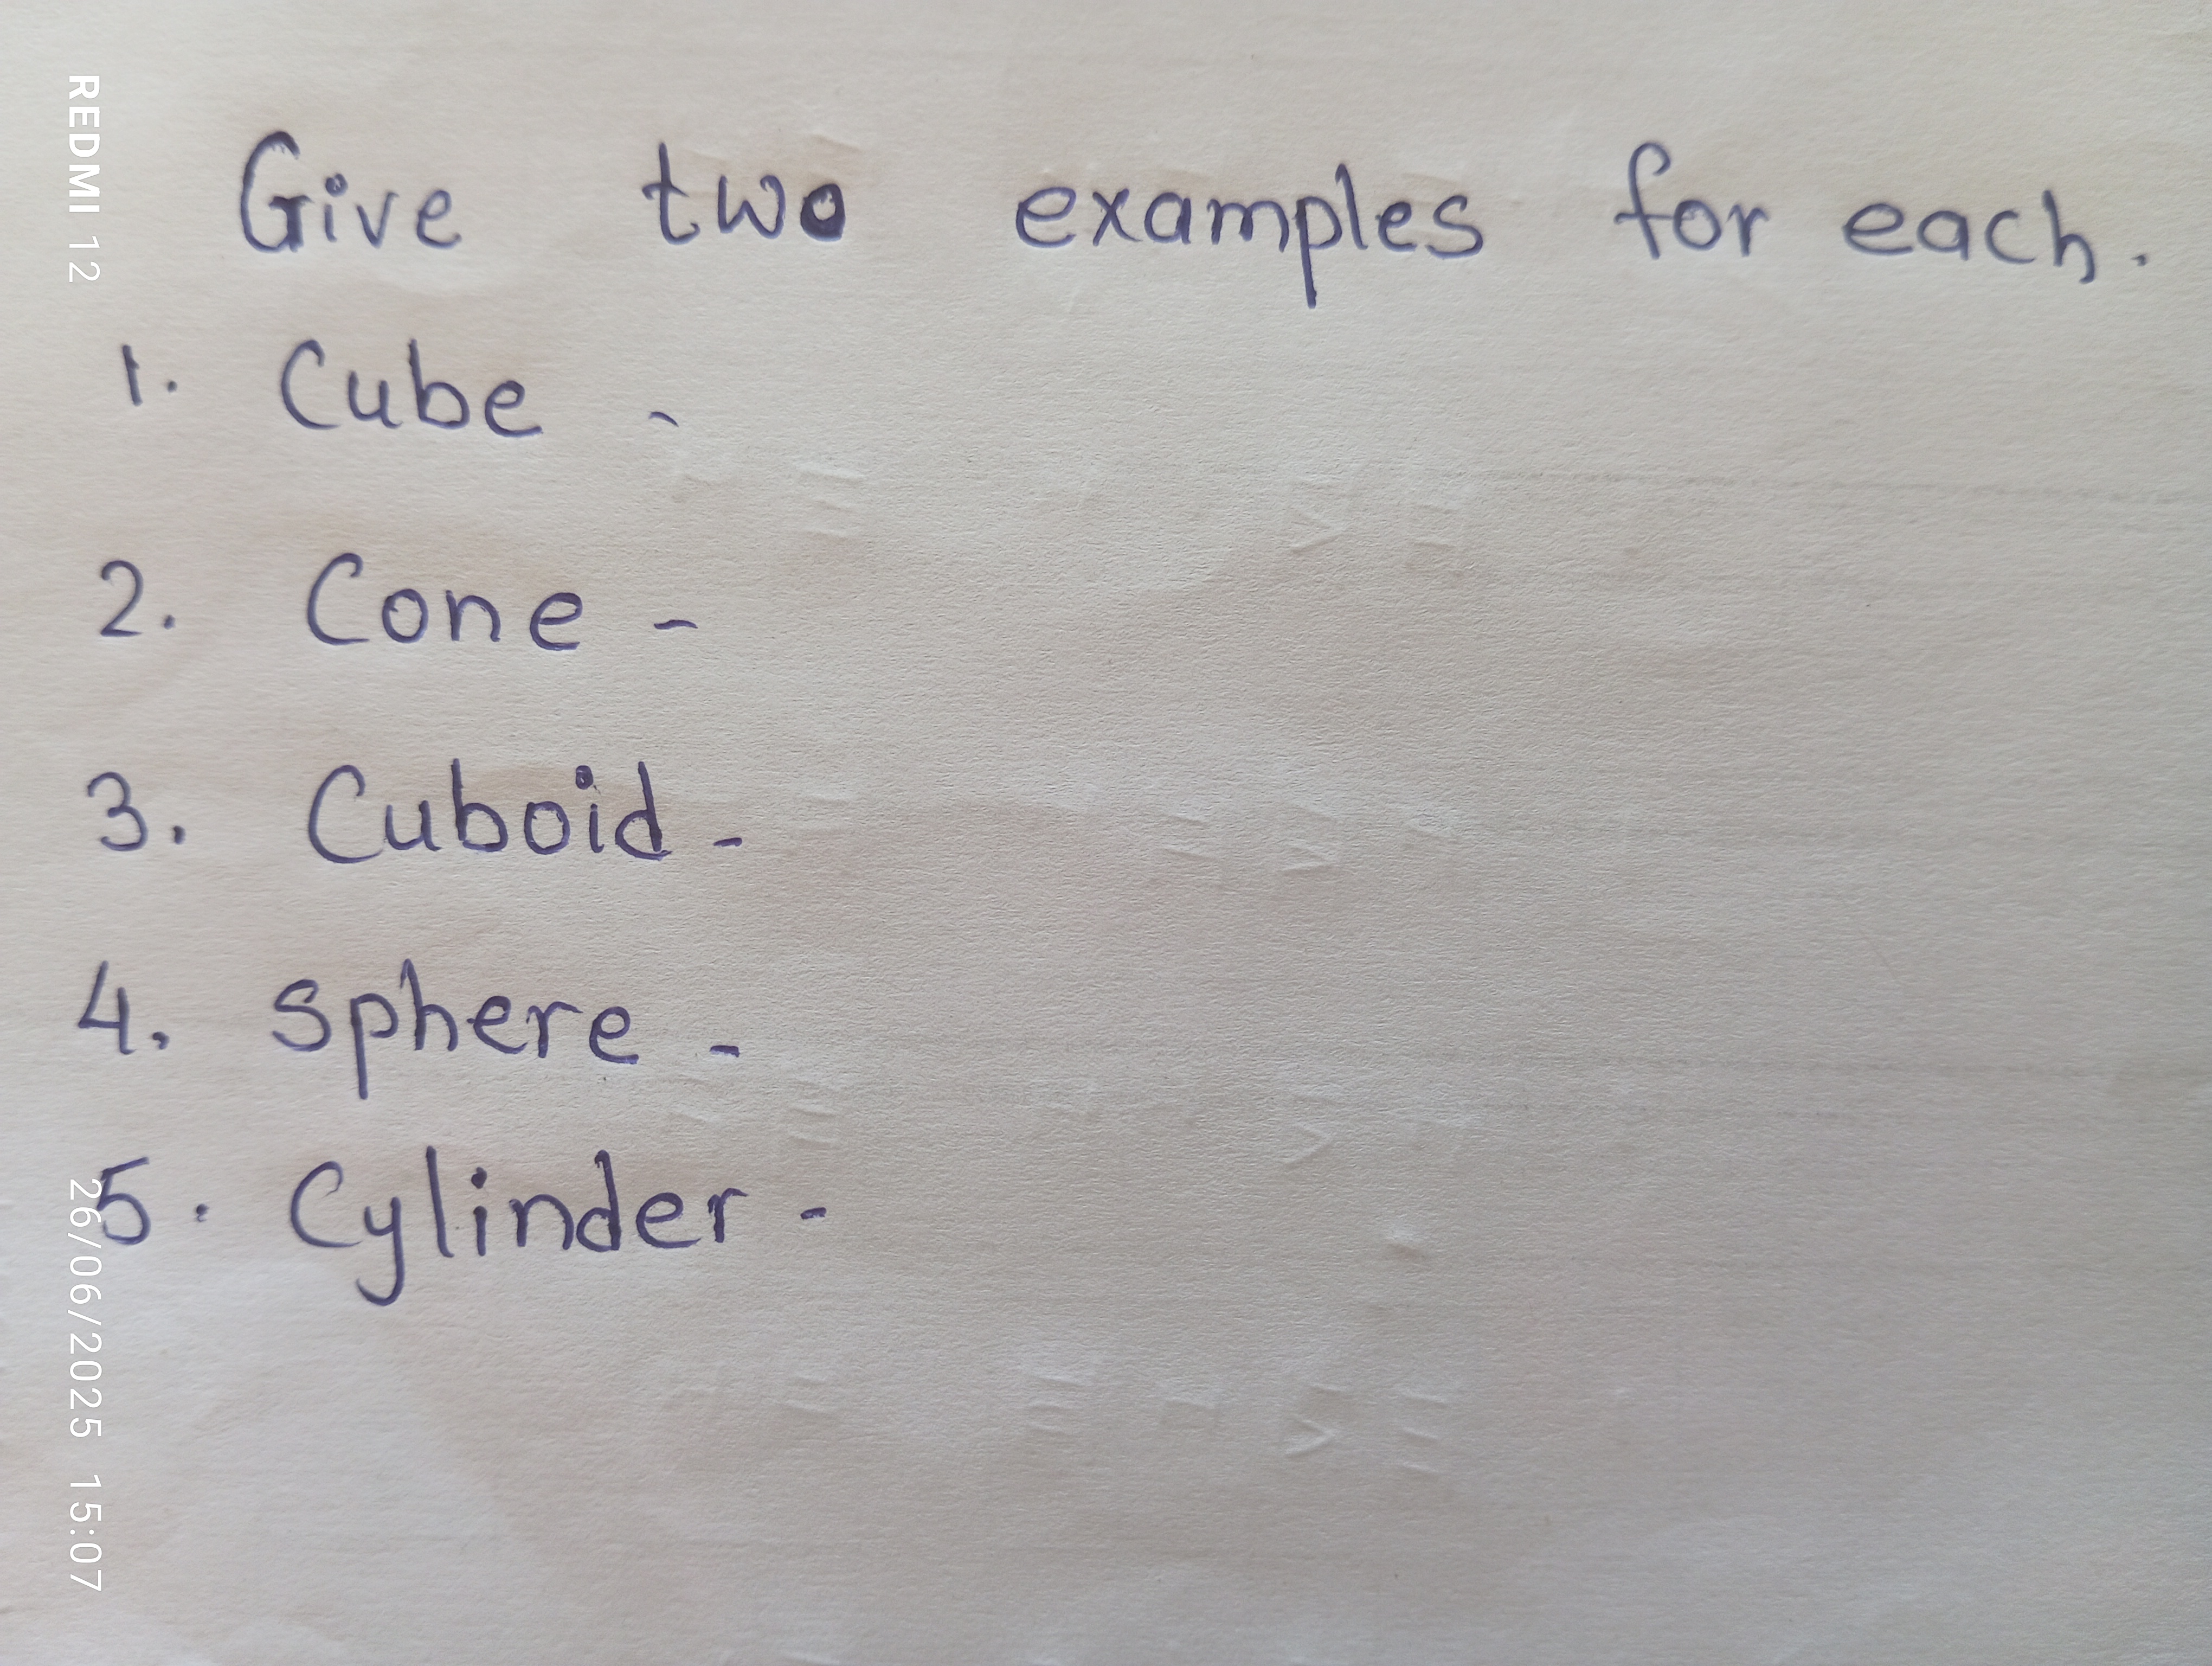 Give two examples for each.
1. Cube -
2. Cone -
3. Cuboid -
4. Sphere -
5. Cylinder -
REDMI 12
26/06/2025 15:07